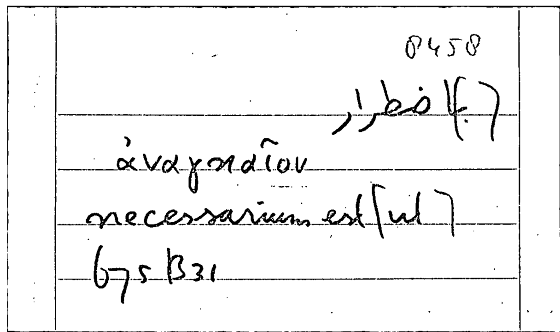 8458
اضطرار
ἀναγκαῖον
necessarium est [ut]
675 B31